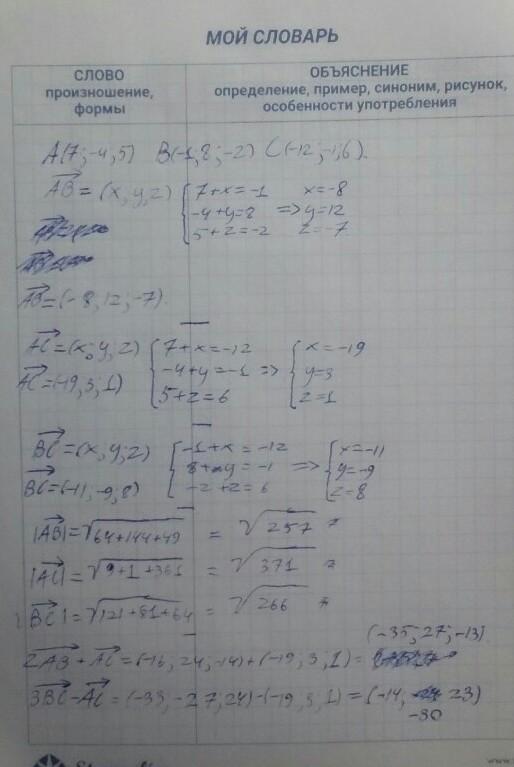 МОЙ СЛОВАРЬ
СЛОВО
произношение,
формы
ОБЪЯСНЕНИЕ
определение, пример, синоним, рисунок,
особенности употребления
A(7;-4,5) B(-1,8,-2) C(-12,-1,6).
AB = (x,y,z) 7+x=-1 x=-8
-4+y=8 => y=12
5+z=-2 z=-7
AB=(-8,12,-7).
AC=(x;y,z) 7+x=-12 x=-19
AC=(-19,3,1) -4+y=-1 => y=3
5+z=6 z=1
BC=(x,y;z) -1+x=-12 x=-11
8+y=-1 => y=-9
BC=(-11,-9,8) -2+z=6 z=8
|AB|=√64+144+49 = √257
|AC|=√9+1+361 = √371
BC|=√121+81+64 = √266
(-35,27,-13).
2AB+AC=(-16,24,-14)+(-19,3,1)=
3BC-AC=(-33,-27,24)-(-19,3,1)=(-14, 23)
-30